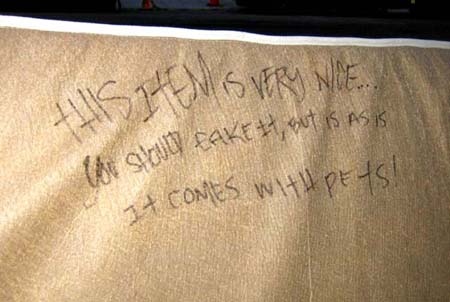 THIS ITEM IS VERY NICE...
YOU SHOULD TAKE IT, BUT IS AS IS
IT COMES WITH PETS!